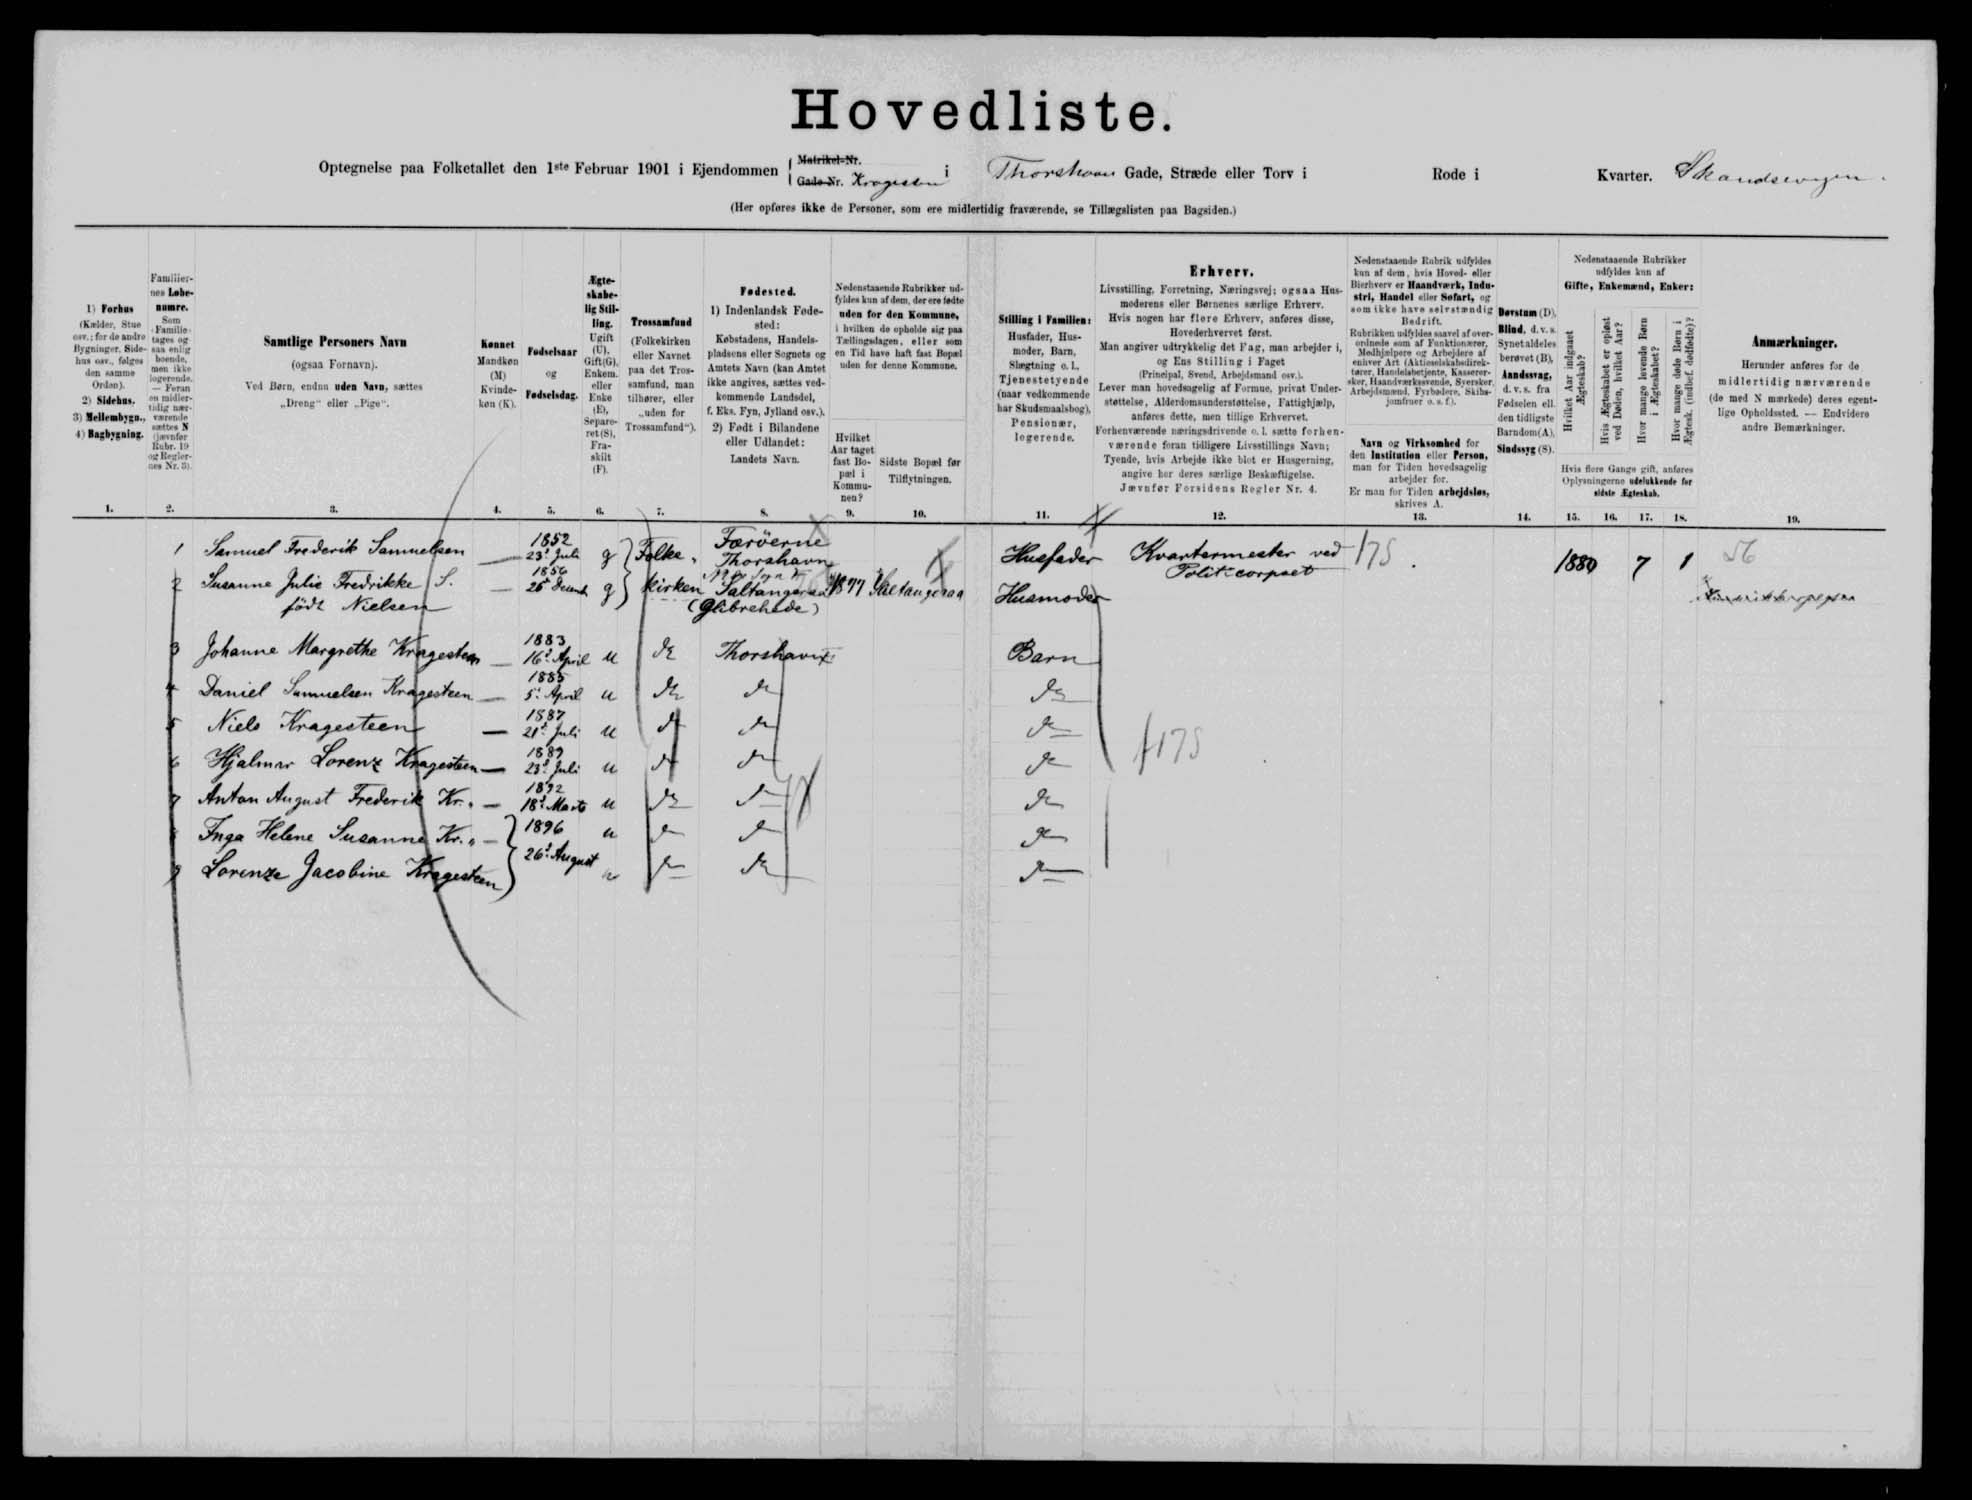 Hovedliste.
Optegnelse paa Folketallet den 1ste Februar 1901 i Ejendommen Matrikel-Nr. Gade-Nr. Kragesteen i Thorshavn Gade, Stræde eller Torv i Rode i Kvarter. Skandsevejen.
(Her opføres ikke de Personer, som ere midlertidig fraværende, se Tillægslisten paa Bagsiden.)
1) Forhus
(Kælder, Stue
osv.; for de andre
Bygninger, Side-
hus osv., følges
den samme
Orden).
2) Sidehus.
3) Mellembygn.,
4) Bagbygning.
Familier-
nes Løbe-
numre.
Som
Familie
tages og-
saa enlig
boende,
men ikke
logerende.
— Foran
en midler-
tidig nær-
værende
sættes N
(jævnfør
Rubr. 19
og Regler-
nes Nr. 3).
Samtlige Personers Navn
(ogsaa Fornavn).
Ved Børn, endnu uden Navn, sættes
„Dreng" eller „Pige".
Kønnet
Mandkøn
(M)
Kvinde-
køn (K).
Fødselsaar
og
Fødselsdag.
Ægte-
skabe-
lig Stil-
ling.
Ugift
(U),
Gift(G),
Enkem.
eller
Enke
(E),
Separe-
ret (S),
Fra-
skilt
(F).
Trossamfund
(Folkekirken
eller Navnet
paa det Tros-
samfund, man
tilhører, eller
„uden for
Trossamfund").
Fødested.
1) Indenlandsk Føde-
sted:
Købstadens, Handels-
pladsens eller Sognets og
Amtets Navn (kan Amtet
ikke angives, sættes ved-
kommende Landsdel,
f. Eks. Fyn, Jylland osv.).
2) Født i Bilandene
eller Udlandet:
Landets Navn.
Nedenstaaende Rubrikker ud-
fyldes kun af dem, der ere fødte
uden for den Kommune,
i hvilken de opholde sig paa
Tællingsdagen, eller som
en Tid have haft fast Bopæl
uden for denne Kommune.
Hvilket
Aar taget
fast Bo-
pæl i
Kommu-
nen?
Sidste Bopæl før
Tilflytningen.
Stilling i Familien:
Husfader, Hus-
moder, Barn,
Slægtning o. l.,
Tjenestetyende
(naar vedkommende
har Skudsmaalsbog),
Pensionær,
logerende.
Erhverv.
Livsstilling, Forretning, Næringsvej; ogsaa Hus-
moderens eller Børnenes særlige Erhverv.
Hvis nogen har flere Erhverv, anføres disse,
Hovederhvervet først.
Man angiver udtrykkelig det Fag, man arbejder i,
og Ens Stilling i Faget
(Principal, Svend, Arbejdsmand osv.).
Lever man hovedsagelig af Formue, privat Under-
støttelse, Alderdomsunderstøttelse, Fattighjælp,
anføres dette, men tillige Erhvervet.
Forhenværende næringsdrivende o. l. sætte forhen-
værende foran tidligere Livsstillings Navn;
Tyende, hvis Arbejde ikke blot er Husgerning,
angive her deres særlige Beskæftigelse.
Jævnfør Forsidens Regler Nr. 4.
Nedenstaaende Rubrik udfyldes
kun af dem, hvis Hoved- eller
Bierhverv er Haandværk, Indu-
stri, Handel eller Søfart, og
som ikke have selvstændig
Bedrift.
Rubrikken udfyldes saavel af over-
ordnede som af Funktionærer,
Medhjælpere og Arbejdere af
enhver Art (Aktieselskabsdirek-
tører, Handelsbetjente, Kasserer-
sker, Haandværkssvende, Syersker,
Arbejdsmænd, Fyrbødere, Skibs-
jomfruer o. s. f.).
Navn og Virksomhed for
den Institution eller Person,
man for Tiden hovedsagelig
arbejder for.
Er man for Tiden arbejdsløs,
skrives A.
Døvstum (D),
Blind, d. v. s.
Synet aldeles
berøvet (B),
Aandssvag,
d. v. s. fra
Fødselen ell.
den tidligste
Barndom(A),
Sindssyg (S).
Nedenstaaende Rubrikker
udfyldes kun af
Gifte, Enkemænd, Enker:
Hvilket Aar indgaaet
Ægteskab?
Hvis Ægteskabet er opløst
ved Døden, hvilket Aar?
Hvor mange levende Børn
i Ægteskabet?
Hvor mange døde Børn i
Ægtesk. (indbef. dødfødte)?
Hvis flere Gange gift, anføres
Oplysningerne udelukkende for
sidste Ægteskab.
Anmærkninger.
Herunder anføres for de
midlertidig nærværende
(de med N mærkede) deres egent-
lige Opholdssted. — Endvidere
andre Bemærkninger.
1. 2. 3. 4. 5. 6. 7. 8. 9. 10. 11. 12. 13. 14. 15. 16. 17. 18. 19.
1 Samuel Frederik Samuelsen — 1852 23d Juli g Folke- Færöerne Thorshavn Husfader Kvartermester ved Politicorpset 175 1880 7 1 56
2 Susanne Julie Fredrikke S. født Nielsen — 1856 25d Decemb g kirken Saltangeraa (Glibrehede) 1877 Saltangeraa Husmoder
3 Johanne Margrethe Kragesteen — 1883 16d April u do Thorshavn Barn
4 Daniel Samuelsen Kragesteen — 1885 5d April u do do do
5 Niels Kragesteen — 1887 21d Juli u do do do
6 Hjalmar Lorenz Kragesteen — 1889 23d Juli u do do do
7 Anton August Frederik Kr. — 1892 18d Marts u do do do
8 Inga Helene Susanne Kr. — 1896 u do do do
9 Lorenze Jacobine Kragesteen 26d August u do do do
175